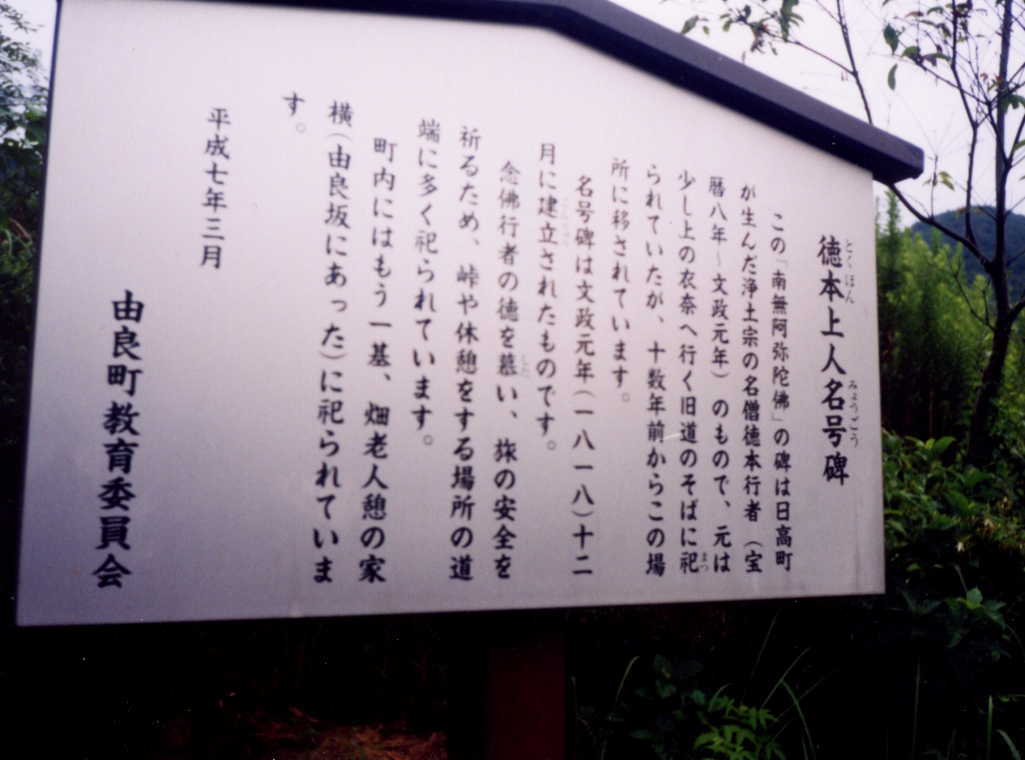 徳本上人名号碑
とくほん
みょうごう
この「南無阿弥陀佛」の碑は日高町
が生んだ浄土宗の名僧徳本行者（宝
暦八年～文政元年）のもので、元は
少し上の衣奈へ行く旧道のそばに祀
まつ
られていたが、十数年前からこの場
所に移されています。
名号碑は文政元年（一八一八）十二
月に建立されたものです。
こんりゅう
念佛行者の徳を慕い、旅の安全を
した
祈るため、峠や休憩をする場所の道
端に多く祀られています。
町内にはもう一基、畑老人憩の家
横（由良坂にあった）に祀られていま
す。
平成七年三月
由良町教育委員会